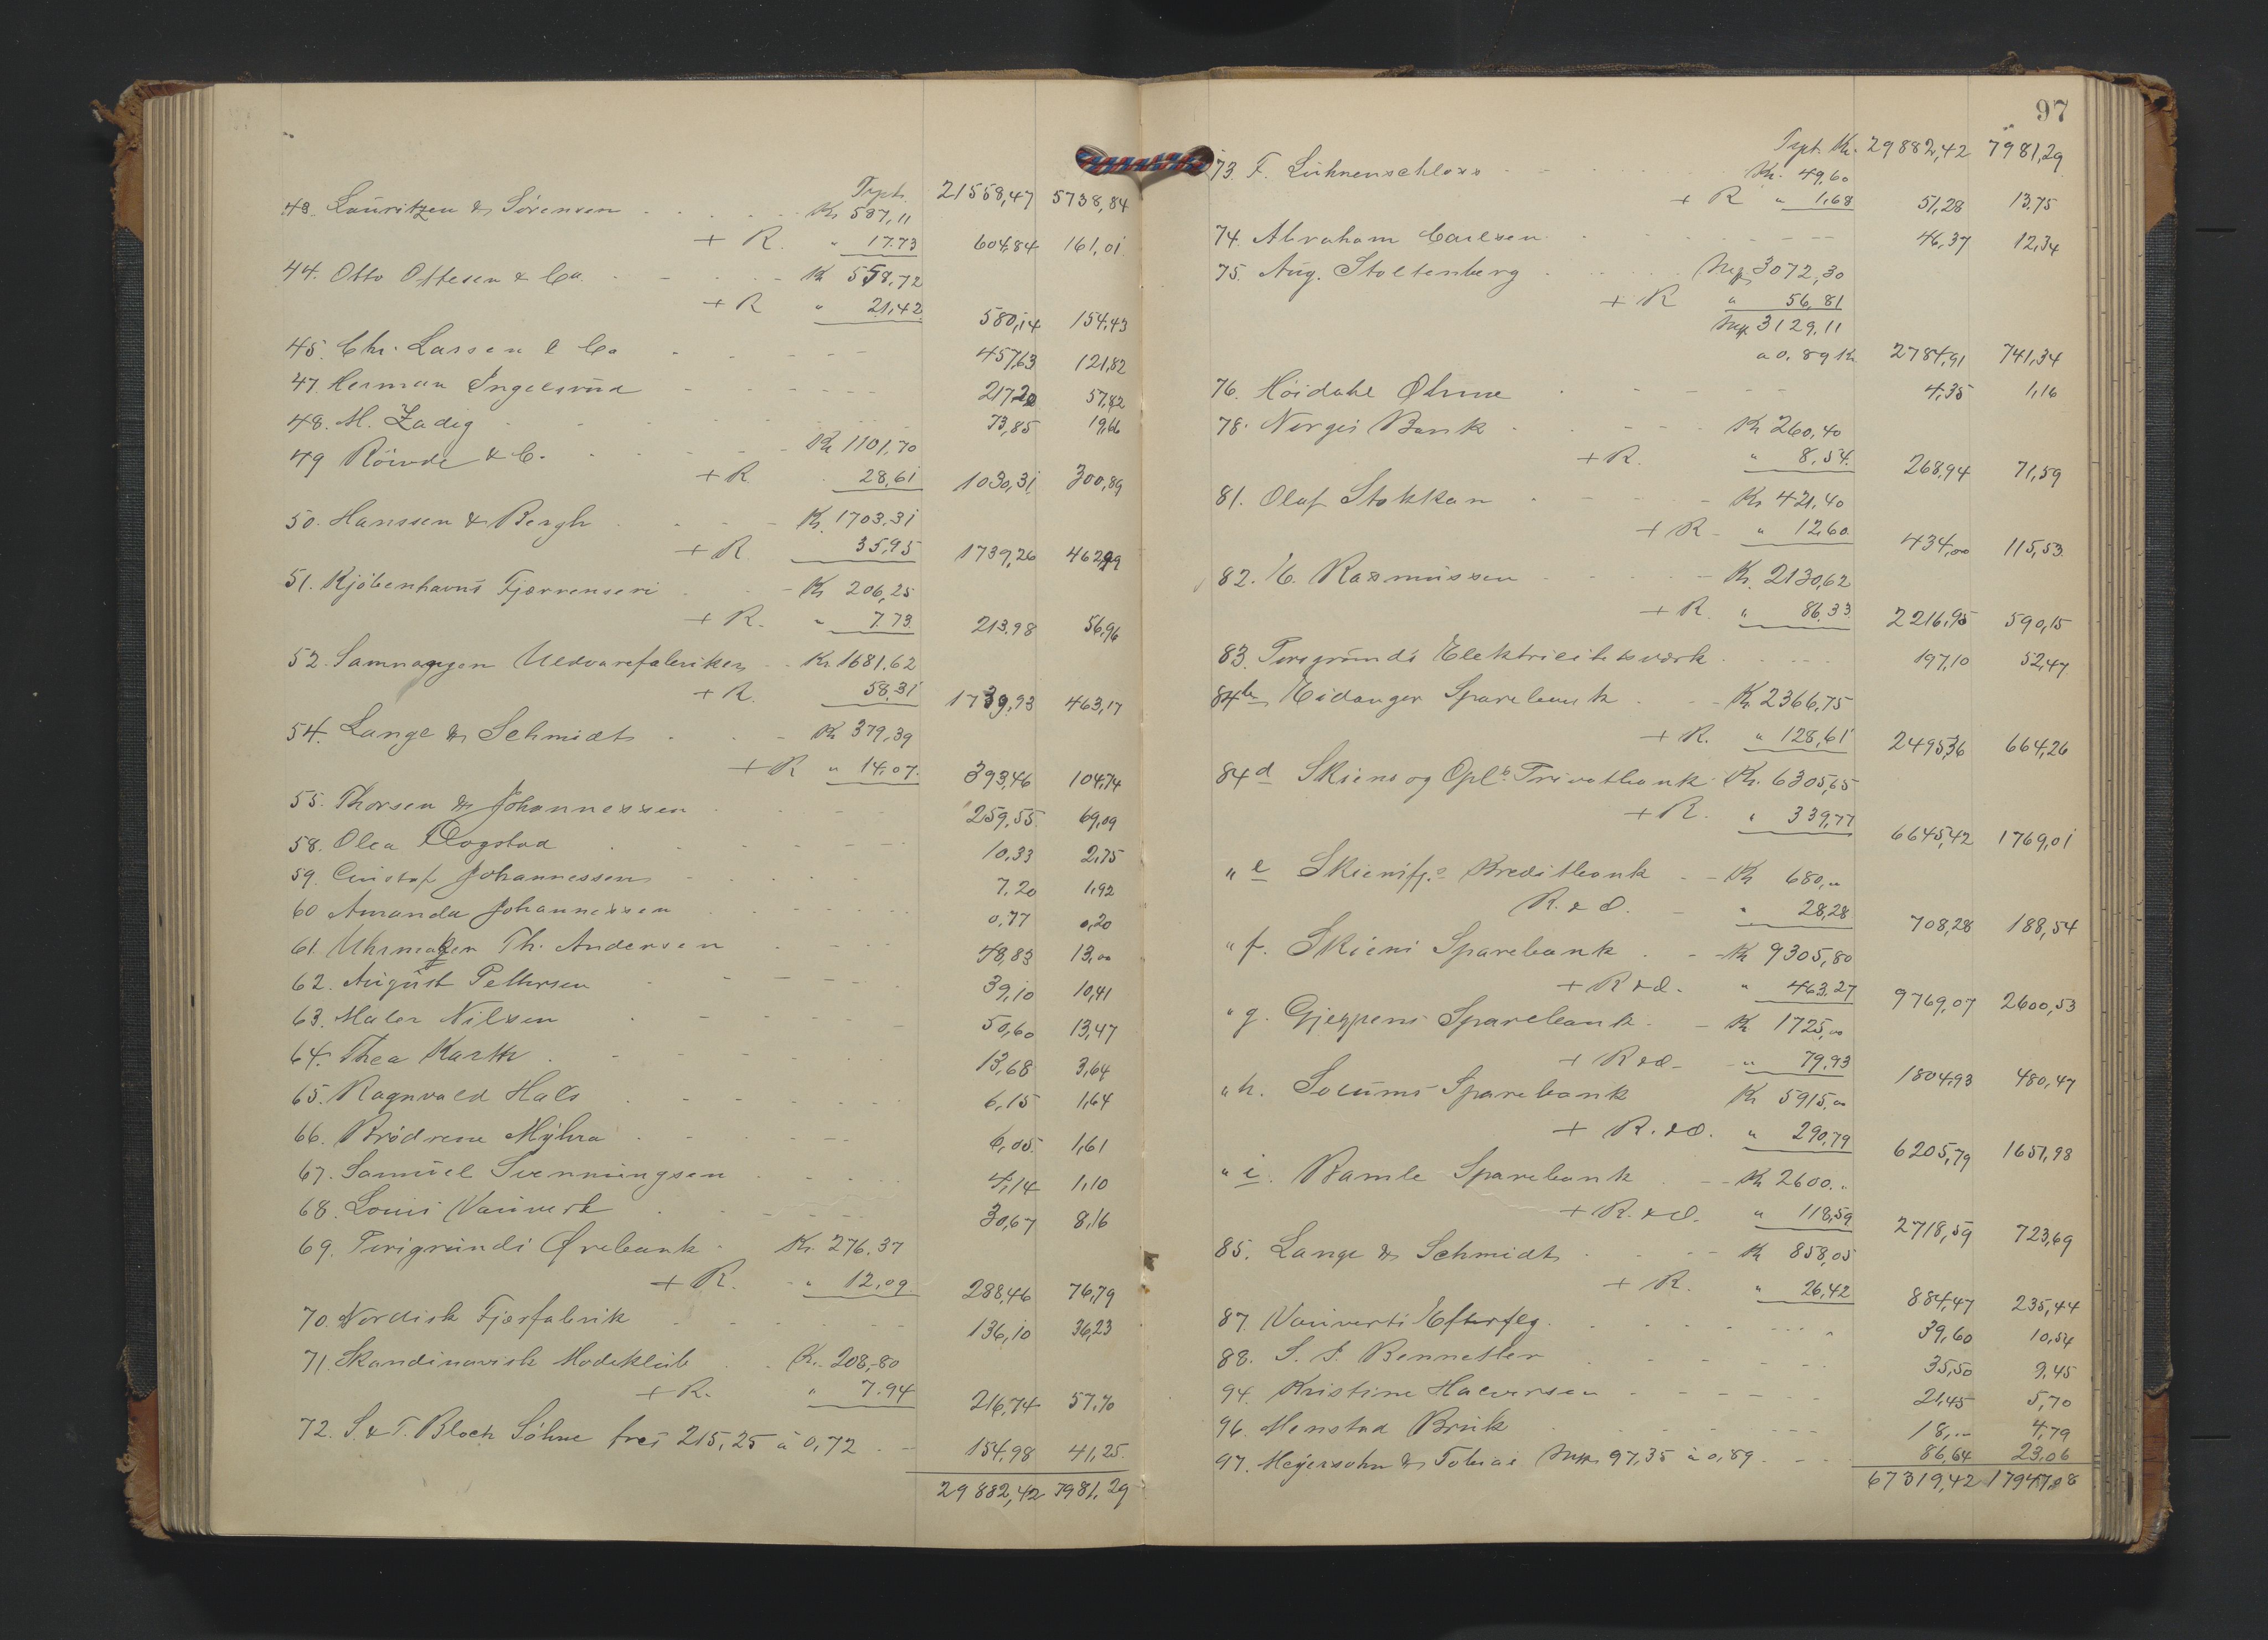 Trpt. 21558,47 5738,84
43. Lauritzen & Sörensen Kr 587,11
+ R. " 17.73 604,84 161,01
44. Otto Ottesen & Co. Kr 558,72
+ R " 21,42 580,14 154,43
45. Chr. Lassen & Co 457,63 121,82
47. Herman Ingelsrud 217,20 57,82
48. M. Zadig 73,85 19,66
49 Röwde & C. Kr 1101,70
+ R. 28,61 1030,31 300,89
50. Hanssen & Bergh Kr. 1703.31
+ R 35,95 1739,26 462,99
51. Kjöbenhavns Fjærrenseri Kr 206,25
+ R. " 7.73. 213,98 56,96
52. Samnangen Uldvarefabriker Kr. 1681,62
+ R. 58.31 1739,93 463,17
54. Lange & Schmidt Kr 379,39
+ R " 14.07. 393,46 104,74
55. Thorsen & Johannessen 259,55 69,09
58. Olea Dogstad 10,33 2,75
59. Gustaf Johannessen 7,20 1,92
60 Amanda Johannessen 0,77 0,20
61. Uhrmaker Th. Andersen 48,83 13,00
62. August Pettersen 39,10 10,41
63. Maler Nilsen 50,60 13,47
64. Thea Karth 13,68 3,64
65. Ragnvald Hals 6,15 1,64
66. Brödrene Myhra 6,05 1,61
67. Samuel Svenningsen 4,14 1,10
68. Louis Vauvert 30,67 8,16
69. Porsgrunds Ørebank Kr. 276.37
+ R. " 12,09 288,46 76,79
70. Nordisk Fjærfabrik 136,10 36,23
71. Skandinavisk Modeklub Kr. 208,80
+ R. " 7.94 216,74 57,70
72. S & T. Bloch Söhne frcs 215,25 à 0,72 154,98 41,25
29882,42 7981,29
97
Trpt. Kr. 29882,42 7981,29
73. F. Lühnenschloss Kr. 49,60
+ R " 1,68 51,28 13.75
74. Abraham Carlsen 46,37 12,34
75. Aug. Stoltenberg Mk 3072,30
+ R " 56,81
Mk 3129,11
a 0,89 Kr 2784,91 741,34
76. Höidahl Øhme 4,35 1,16
78. Norges Bank Kr 260,40
+ R. " 8,54. 268,94 71,59
81. Olaf Stokkan Kr 421,40
+ R - " 12,60 434,00 115,53
82. C. Rasmussen Kr. 2130,62
+ R. " 86,33 2216,95 590,15
83. Porsgrunds Elektricitetsværk 197,10 52,47
84b Eidanger Sparebank Kr 2366,75
+ R. " 128,61 2495,36 664,26
84d Skiens og Opl.s Privatbank Kr. 6305,65
+ R. " 339,77 6645,42 1769,01
" e Skiensfj.s Kreditbank Kr 680,00
R. & O. " 28,28 708,28 188,54
" f. Skiens Sparebank Kr 9305,80
+ R & O. " 463,27 9769,07 2600,53
" g. Gjerpens Sparebank Kr 1725,00
+ R & O. " 79,93 1804,93 480,47
" h. Solums Sparebank Kr 5915,00
+ R. & O. " 290,79 6205,79 1651,98
" i. Bamle Sparebank Kr 2600.
+ R. & O. " 118,59 2718,59 723,69
85. Lange & Schmidt Kr 858,05
+ R. " 26,42 884,47 235,44
87. Vauverts Efterflg. 39,60 10,54
88. S. J. Bennetter 35,50 9,45
94. Kristine Halvorsen 21,45 5,70
96. Menstad Bruk 18,- 4,79
97. Meyersohn & Tobias Mk 97,35 à 0,89 86,64 23,06
67319,42 17947,08